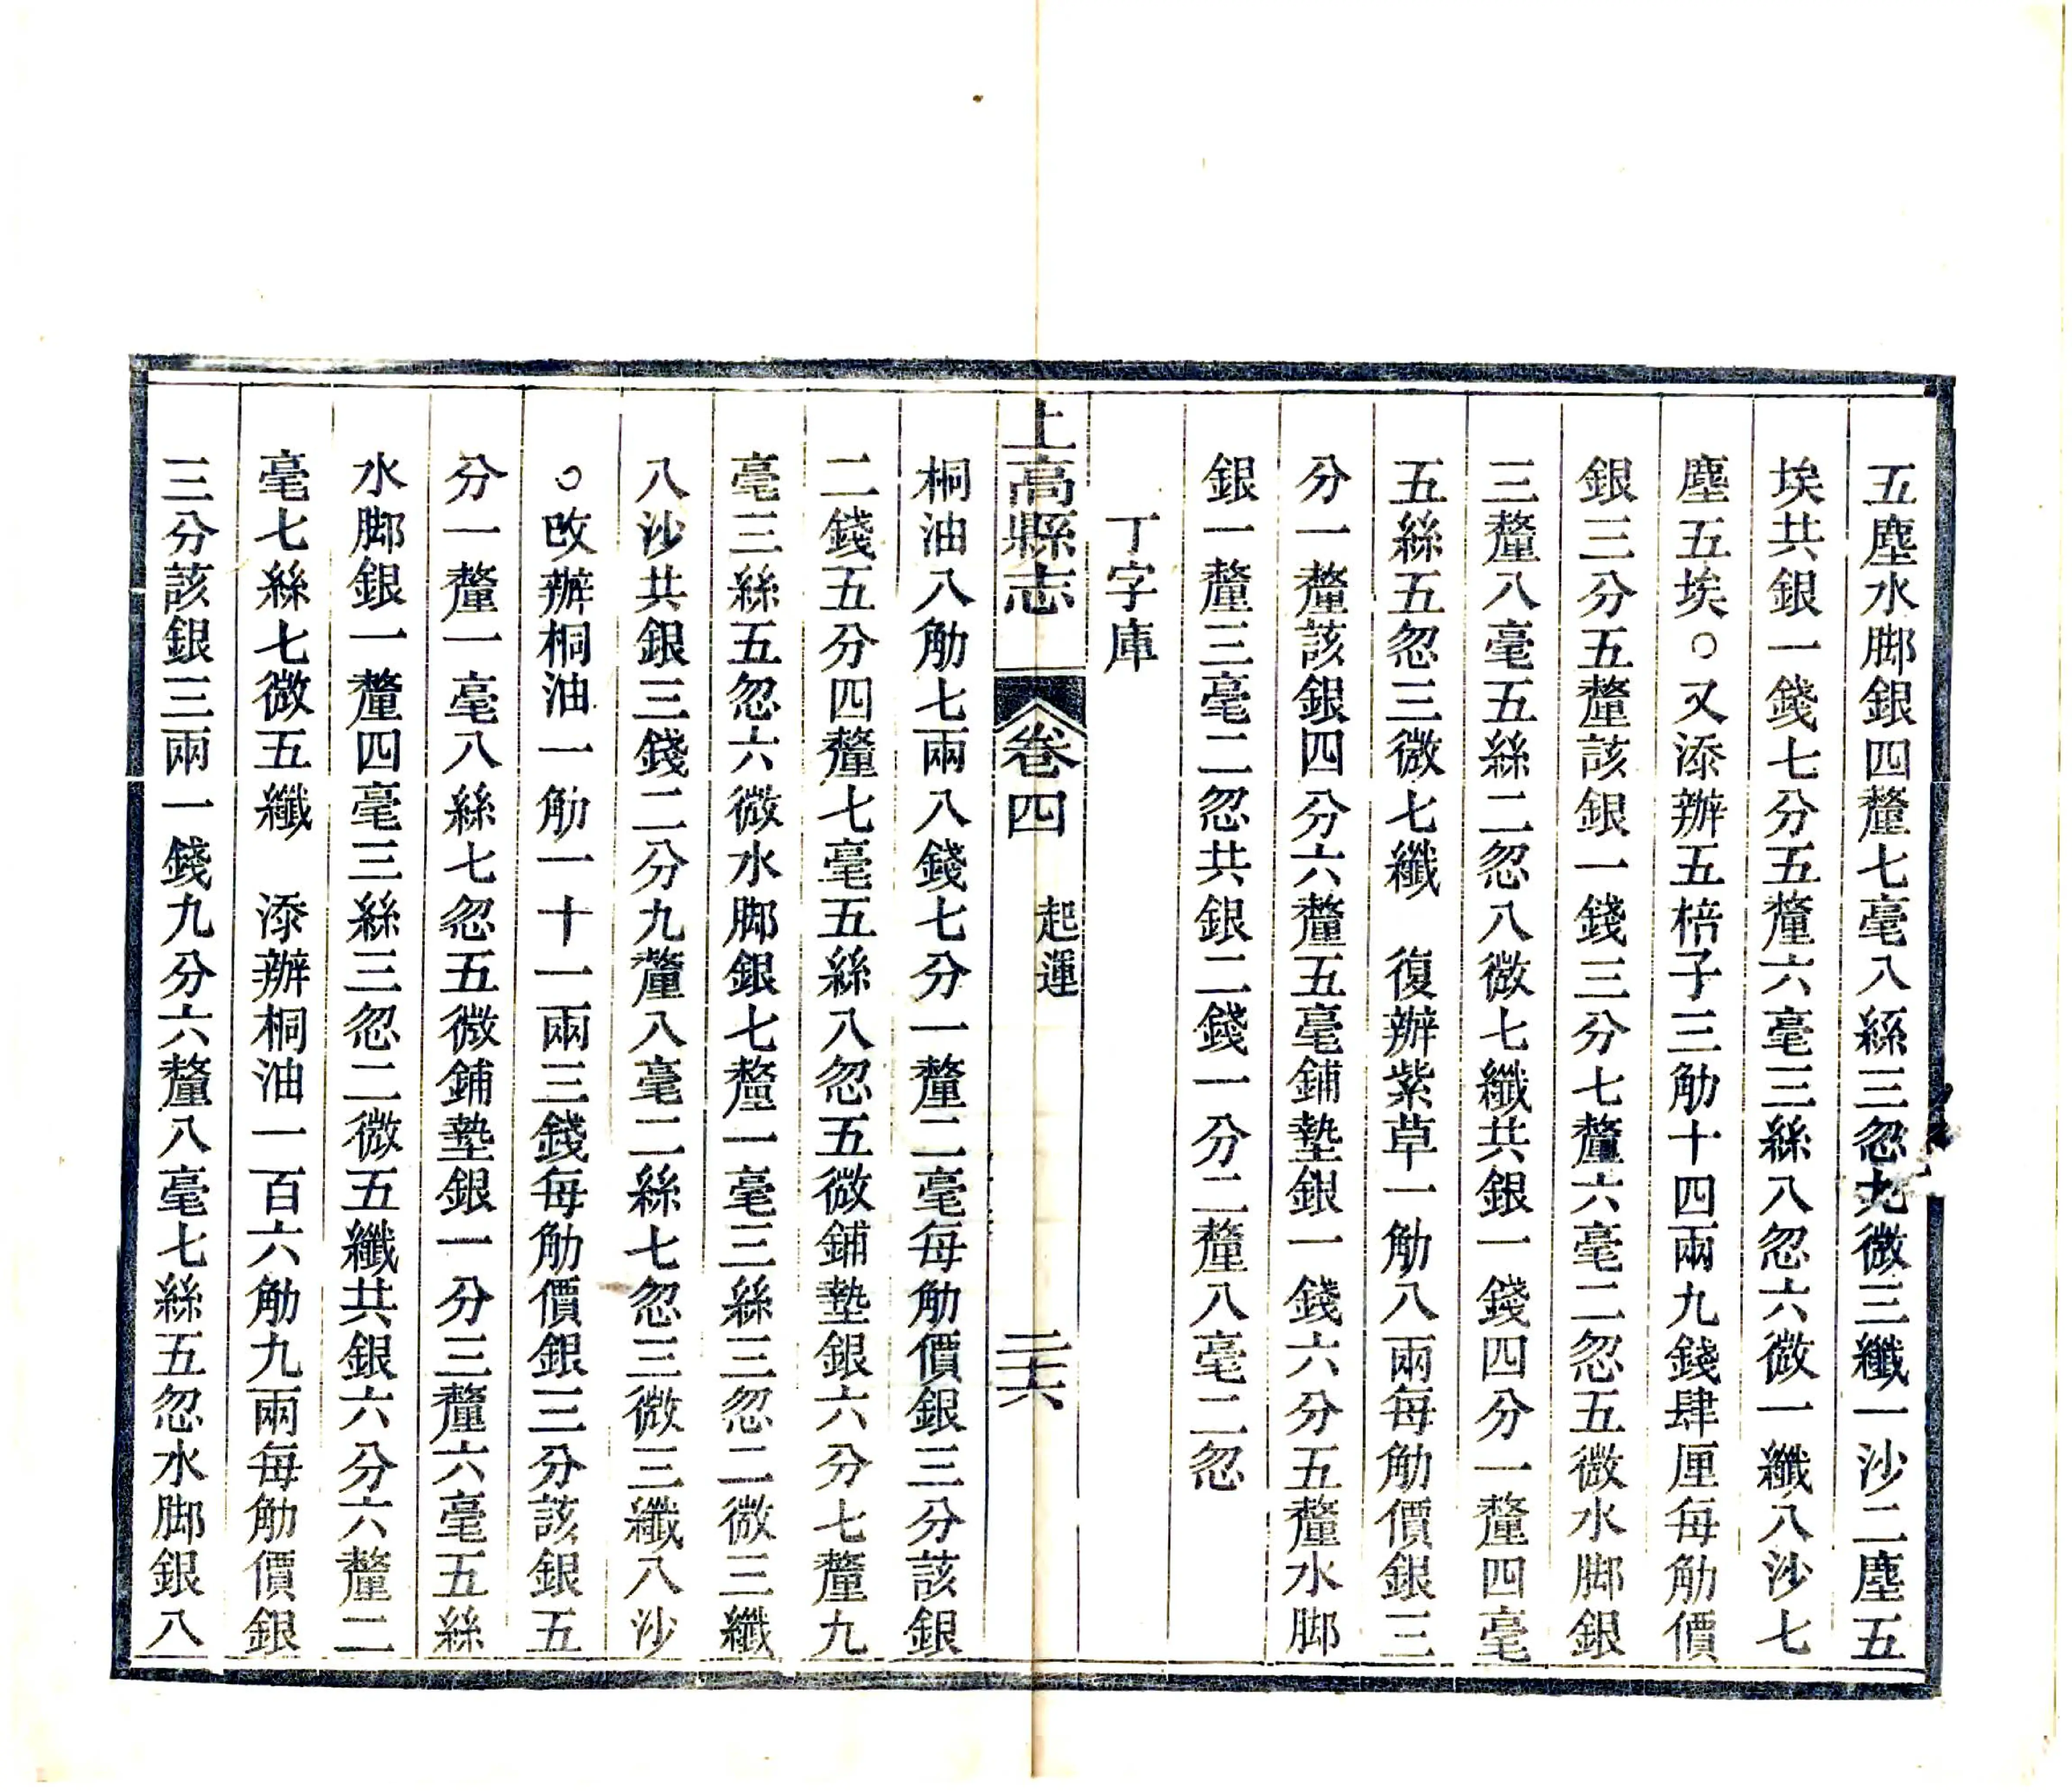 五塵水脚銀四釐七毫八絲三忽九微三纖一沙二塵五
埃共銀一錢七分五釐六毫三絲八忽六微一纖八沙七
塵五埃○又添辦五棓子三觔十四兩九錢肆厘每觔價
銀三分五釐該銀一錢三分七釐六毫二忽五微水脚銀
三釐八毫五絲二忽八微七纖共銀一錢四分一釐四毫
五絲五忽三微七纖　復辦紫草一觔八兩每觔價銀三
分一釐該銀四分六釐五毫鋪墊銀一錢六分五釐水脚
銀一釐三毫二忽共銀二錢一分二釐八毫二忽
丁字庫
上高縣志　卷四　起運　二十六
桐油八觔七兩八錢七分一釐二毫每觔價銀三分該銀
二錢五分四釐七毫五絲八忽五微鋪墊銀六分七釐九
毫三絲五忽六微水脚銀七釐一毫三絲三忽二微三纖
八沙共銀三錢二分九釐八毫二絲七忽三微三纖八沙
○改辦桐油一觔一十一兩三錢每觔價銀三分該銀五
分一釐一毫八絲七忽五微鋪墊銀一分三釐六毫五絲
水脚銀一釐四毫三絲三忽二微五纖共銀六分六釐二
毫七絲七微五纖　添辦桐油一百六觔九兩每觔價銀
三分該銀三兩一錢九分六釐八毫七絲五忽水脚銀八